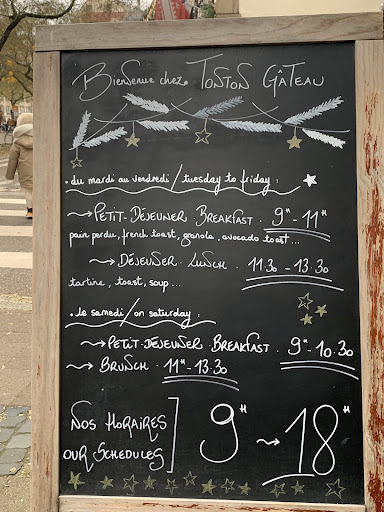 Bienvenue chez TONTON GÂTEAU
• du mardi au vendredi / tuesday to friday :
→ PETIT-DÉJEUNER. BREAKFAST. 9H - 11H
pain perdu, french toast, granola, avocado toast...
→ DÉJEUNER. LUNCH. 11.30 - 13.30
tartine, toast, soup...
• le samedi / on saturday :
→ PETIT-DÉJEUNER. BREAKFAST. 9H - 10.30
→ BRUNCH. 11H - 13.30
NOS HORAIRES
OUR SCHEDULES
9H → 18H